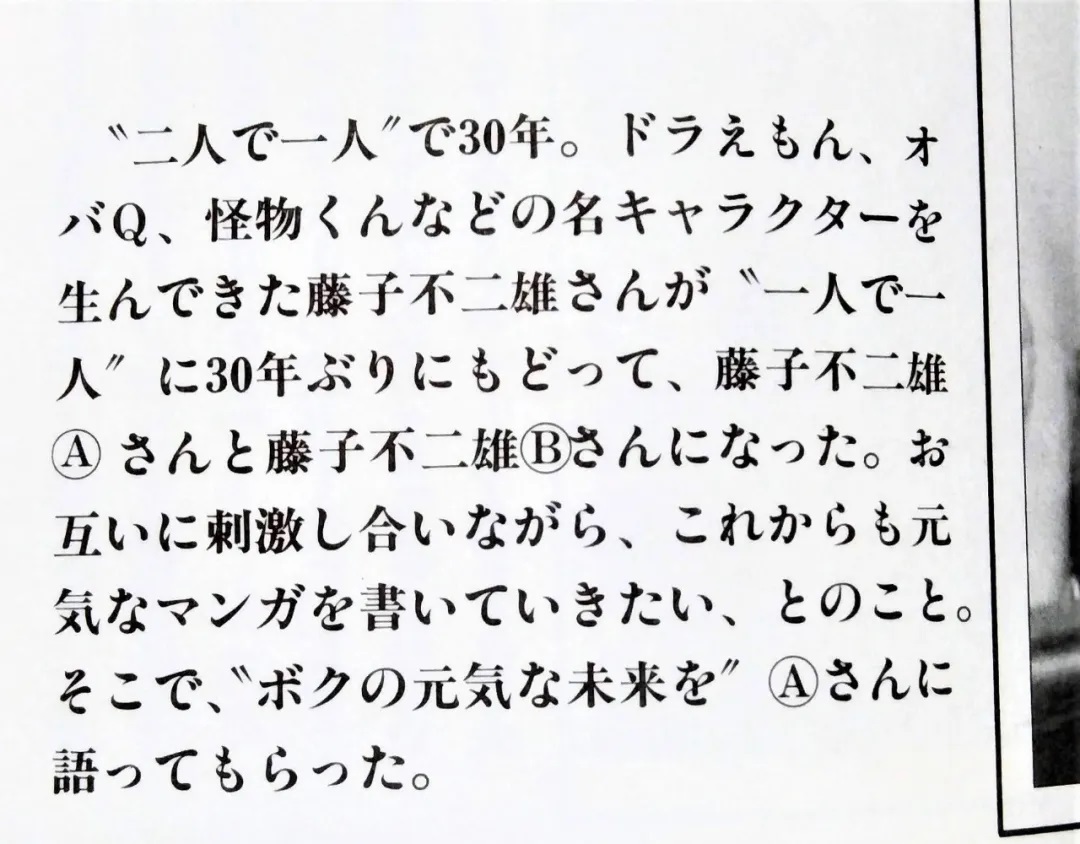 〝二人で一人〞で30年。ドラえもん、オ
バQ、怪物くんなどの名キャラクターを
生んできた藤子不二雄さんが〝一人で一
人〞に30年ぶりにもどって、藤子不二雄
Ⓐさんと藤子不二雄Ⓑさんになった。お
互いに刺激し合いながら、これからも元
気なマンガを書いていきたい、とのこと。
そこで、〝ボクの元気な未来を〞Ⓐさんに
語ってもらった。